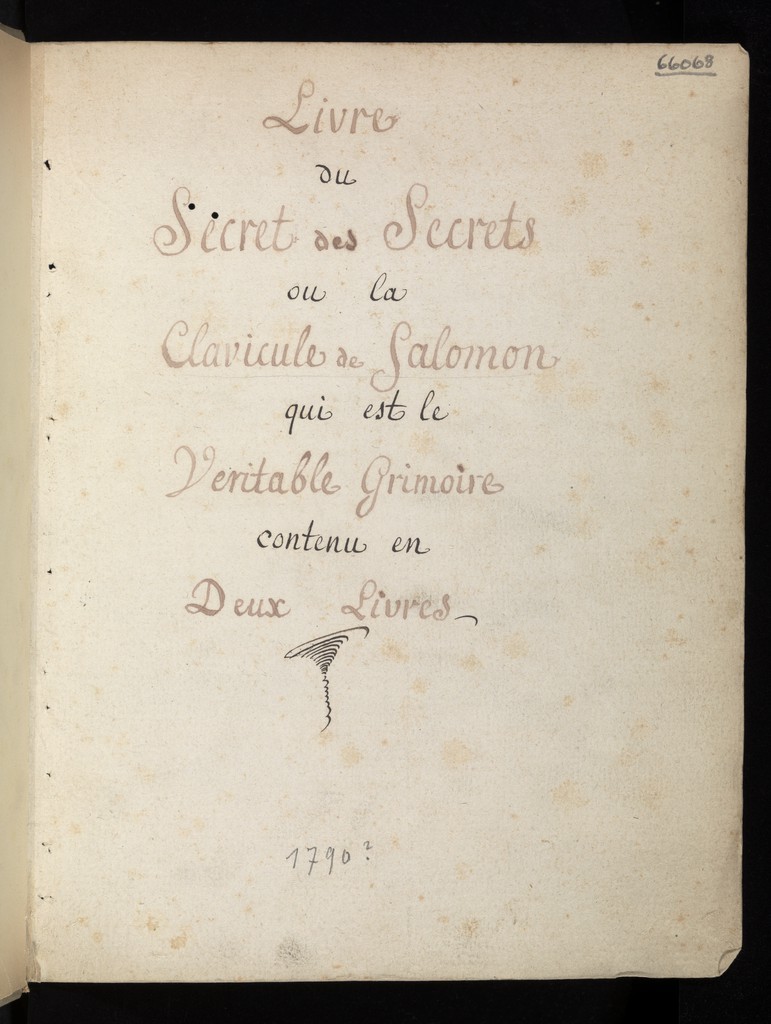 66068
Livre
du
Sècret des Secrets
ou la
Clavicule de Salomon
qui est le
Veritable Grimoire
contenu en
Deux Livres
1790?